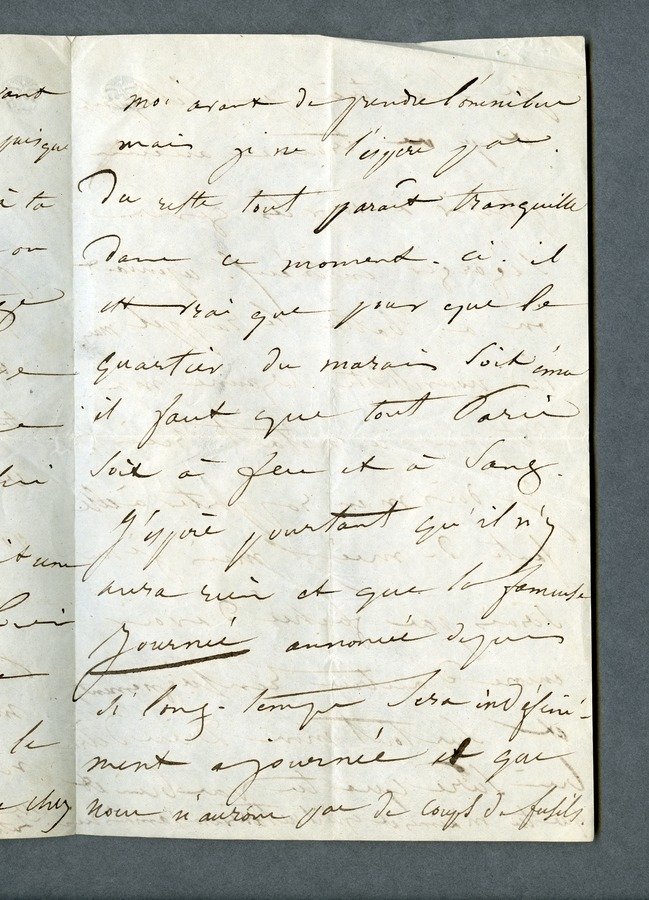 vant
puisque
à ta
on
le
chez
moi avant de prendre l'omnibus
mais je ne l'espère pas.
Du reste tout paraît tranquille
dans ce moment-ci. il
est vrai que pour que le
quartier du marais soit ému
il faut que tout Paris
soit à feu et à Sang.
J'espère pourtant qu'il n'y
aura rien et que la fameuse
journée annoncée depuis
si long-temps sera indéfini-
ment ajournée et que
nous n'aurons pas de coups de fusils.